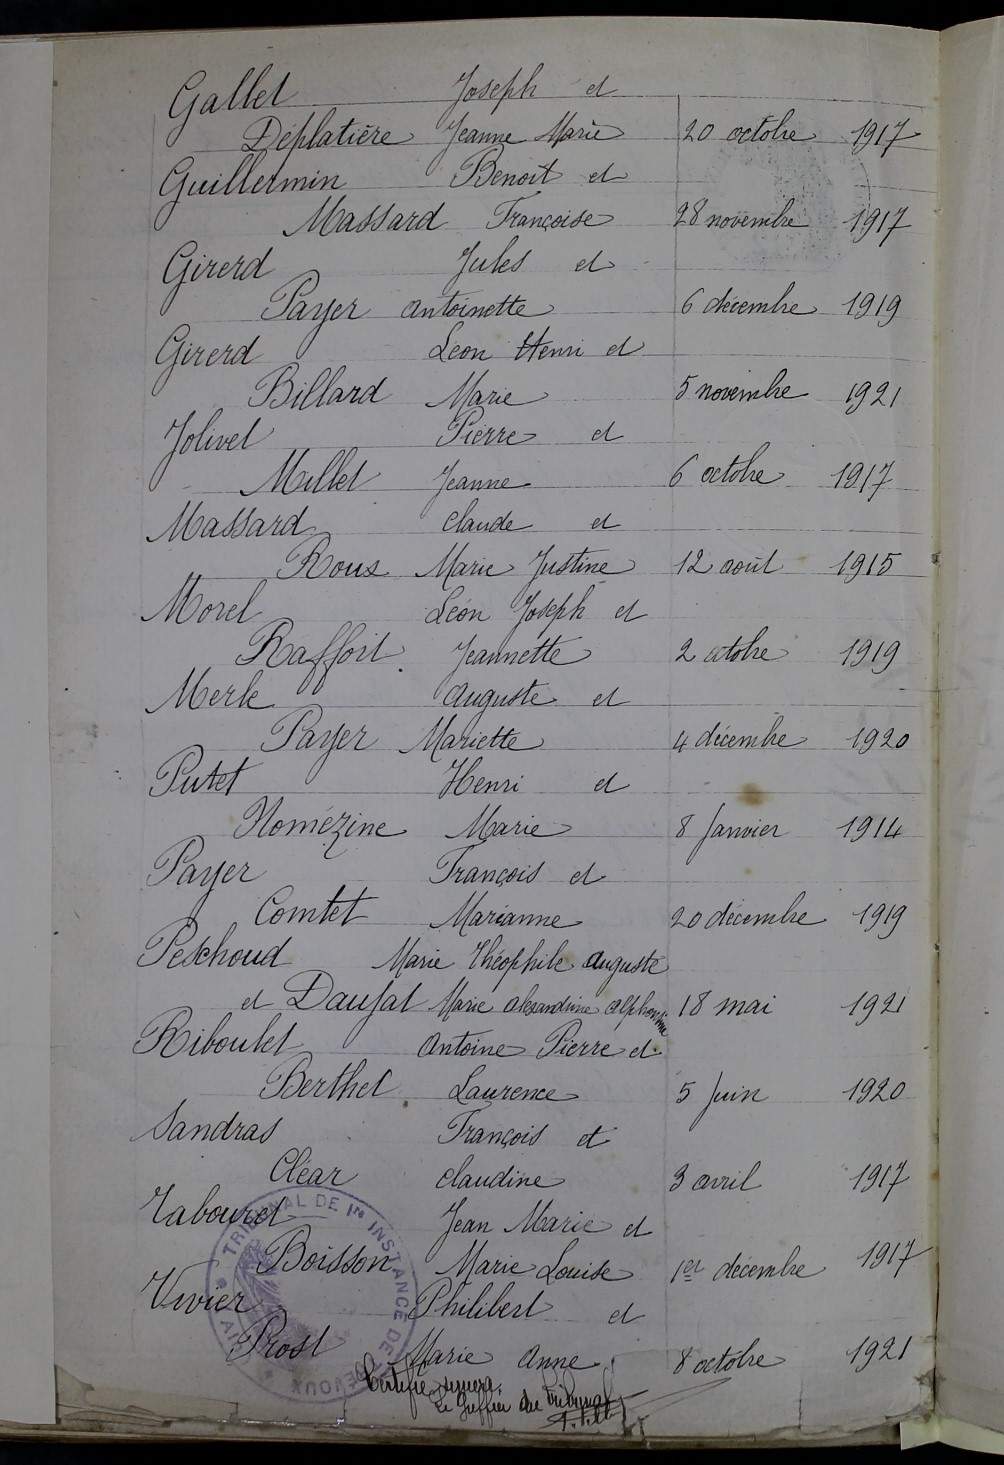 Gallet Joseph et
Déplatière Jeanne Marie 20 octobre 1917
Guillermin Benoit et
Massard Françoise 28 novembre 1917
Girerd Jules et
Payer antoinette 6 décembre 1919
Girerd Léon Henri et
Billard Marie 5 novembre 1921
Jolivet Pierre et
Millet Jeanne 6 octobre 1917
Massard claude et
Roux Marie Justine 12 août 1915
Morel Léon Joseph et
Raffort Jeannette 2 octobre 1919
Merle auguste et
Payer Mariette 4 décembre 1920
Putet Henri et
Nomézine Marie 8 Janvier 1914
Payer François et
Comtet Marianne 20 décembre 1919
Peschoud Marie Théophile auguste
et Daujat Marie alexandrine alphonsine 18 mai 1921
Riboulet antoine Pierre et
Berthet Laurence 5 Juin 1920
Sandras François et
Cléar claudine 3 avril 1917
Tabouret Jean Marie et
Boisson Marie Louise 1er décembre 1917
Vivier Philibert et
Prost Marie anne 8 octobre 1921
TRIBUNAL DE 1re INSTANCE DE TRÉVOUX AIN
Certifié
Le Greffier du Tribunal